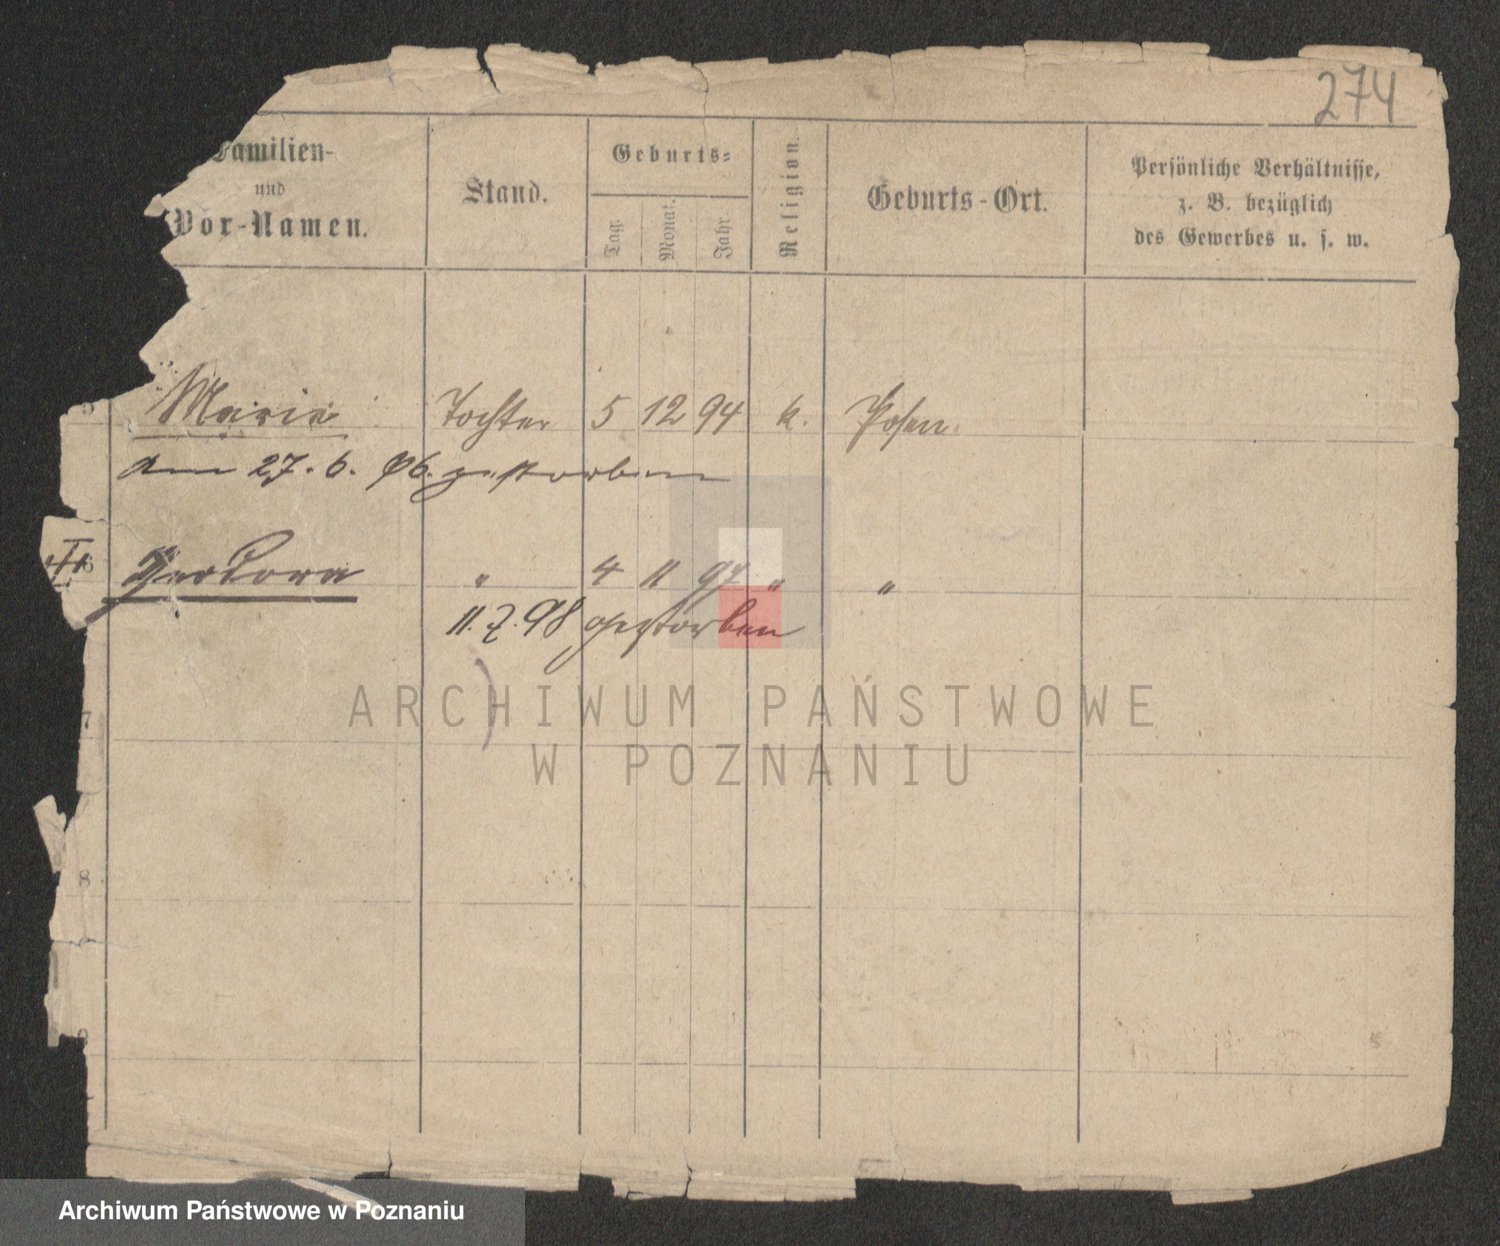 274
Familien-
und
Vor-Namen.
Stand.
Geburts-
Tag.
Monat.
Jahr.
Religion.
Geburts-Ort.
Persönliche Verhältnisse,
z. B. bezüglich
des Gewerbes u. s. w.
5 Marie Tochter 5 12 94 k. Posen.
am 27. 6. 96. gestorben
6 " 4 11 97 " "
11. 7. 98 gestorben
7
8
9
ARCHIWUM PAŃSTWOWE
W POZNANIU
Archiwum Państwowe w Poznaniu